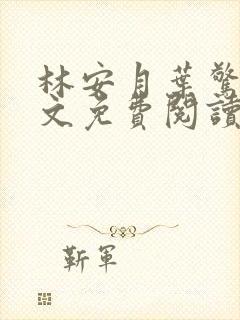 林安月葉驚
文免費閱讀
靳軍